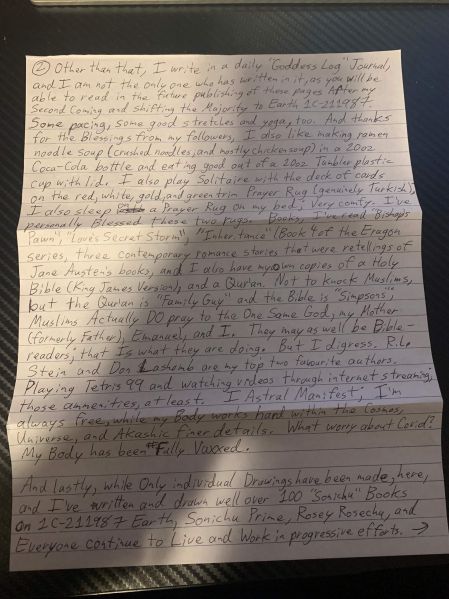 ② Other than that, I write in a daily "Goddess Log" Journal,
and I am not the only one who has written in it, as you will be
able to read in the future publishing of these pages After my
Second Coming and shifting the Majority to Earth 1C-211987.
Some pacing, some good stretches and yoga, too. And thanks
for the Blessings from my followers, I also like making ramen
noodle soup (crushed noodles, and mostly chicken soup) in a 20oz
Coca-Cola bottle and eating good out of a 20oz Tumbler plastic
cup with lid. I also play Solitaire with the deck of cards
on the red, white, gold, and green trim Prayer Rug (genuinely Turkish);
I also sleep a Prayer Rug on my bed; very comfy. I've
personally Blessed these two rugs. Books, I've read "Bishop's
Pawn", "Love's Secret Storm", "Inheritance" (Book 4 of the Eragon
series, three contemporary romance stories that were retellings of
Jane Austen's books, and I also have my own copies of a Holy
Bible (King James Version), and a Qur'an. Not to knock Muslims,
but the Qur'an is "Family Guy" and the Bible is "Simpsons";
Muslims Actually DO pray to the One Same God, my Mother
(formerly Father), Emanuel, and I. They may as well be Bible-
readers; that Is what they are doing. But I digress. R.L.
Stein and Don Lashomb are my top two favourite authors.
Playing Tetris 99 and watching videos through internet streaming,
those ammenitres, at least. I Astral Manifest; I'm
always free, while my Body works hard within the Cosmos,
Universe, and Akashic finer details. What worry about Covid?
My Body has been Fully Vaxxed.
And lastly, while Only individual Drawings have been made, here,
and I've written and drawn well over 100 "Sonichu" Books
on 1C-211987 Earth, Sonichu Prime, Rosey Rosechu, and
Everyone continue to Live and Work in progressive efforts. →